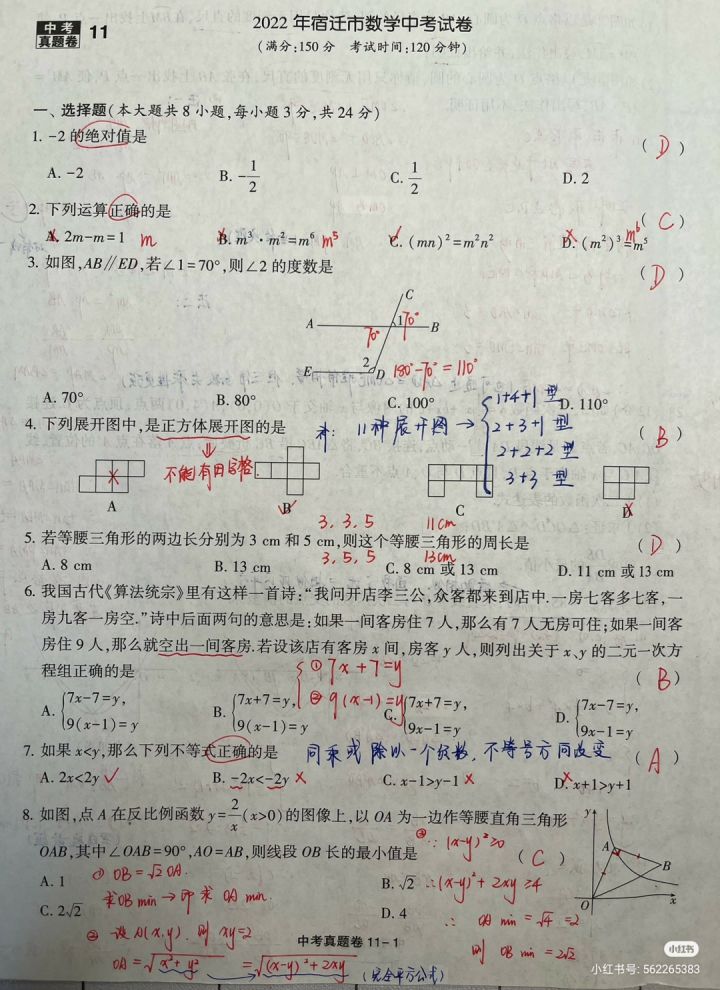 中考
真题卷 11
2022年宿迁市数学中考试卷
(满分:150分 考试时间:120分钟)
一、选择题(本大题共8小题,每小题3分,共24分)
1. -2的绝对值是 ( D )
A. -2 B. -1/2 C. 1/2 D. 2
2. 下列运算正确的是 ( C )
A. 2m-m=1 m B. m³·m²=m⁶ m⁵ C. (mn)²=m²n² D. (m²)³=m⁵ m⁶
3. 如图,AB∥ED,若∠1=70°,则∠2的度数是 ( D )
C
A 70° 1 70° B
E 2 D 180°-70°=110°
A. 70° B. 80° C. 100° D. 110°
4. 下列展开图中,是正方体展开图的是 ( B )
补: 11种展开图 → { 1+4+1 型
2+3+1 型
2+2+2 型
3+3 型
不能有田字格.
A B C D
3, 3, 5 11cm
5. 若等腰三角形的两边长分别为3 cm和5 cm,则这个等腰三角形的周长是 ( D )
3, 5, 5 13cm
A. 8 cm B. 13 cm C. 8 cm或13 cm D. 11 cm或13 cm
6. 我国古代《算法统宗》里有这样一首诗:“我问开店李三公,众客都来到店中.一房七客多七客,一
房九客一房空.”诗中后面两句的意思是:如果一间客房住7人,那么有7人无房可住;如果一间客
房住9人,那么就空出一间客房.若设该店有客房x间,房客y人,则列出关于x、y的二元一次方
程组正确的是 ( B )
{ ① 7x+7=y
② 9(x-1)=y
A. {7x-7=y, B. {7x+7=y, C. {7x+7=y, D. {7x-7=y,
9(x-1)=y 9(x-1)=y 9x-1=y 9x-1=y
7. 如果x<y,那么下列不等式正确的是 ( A )
同乘或除以一个负数,不等号方向改变
A. 2x<2y B. -2x<-2y C. x-1>y-1 D. x+1>y+1
8. 如图,点A在反比例函数y=2/x(x>0)的图像上,以OA为一边作等腰直角三角形
OAB,其中∠OAB=90°,AO=AB,则线段OB长的最小值是 ( C )
y
A
B
O x
A. 1 B. √2
C. 2√2 D. 4
① OB=√2 OA.
求OB min → 即求 OA min.
② 设A(x,y). 则 xy=2
OA=√x²+y² =√(x-y)²+2xy (完全平方公式)
③ ∵ (x-y)²≥0
∴ (x-y)²+2xy≥4
∴ OA min=√4=2
则 OB min=2√2
中考真题卷 11-1
小红书
小红书号: 562265383